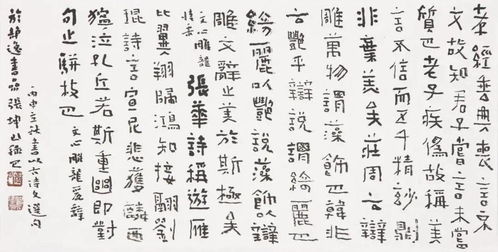 孝經垂典喪言不
文故知君子常言未嘗
質也老子疾偽故稱美
言不信而五千精妙則
非棄美矣莊周云辯
雕萬物謂藻飾也韓非
云艷乎辯說謂綺麗也
綺麗以艷說藻飾以辯
雕文辭之美於斯極矣
文心雕龍
情采
張華詩稱遊雁
比翼翔歸鴻知接翮劉
琨詩言宣尼悲獲麟西
狩泣孔丘若斯重出即對
句之駢枝也
文心雕龍麗辭
丙申立秋書以六詩文選句
於靜逸書屋張坤山